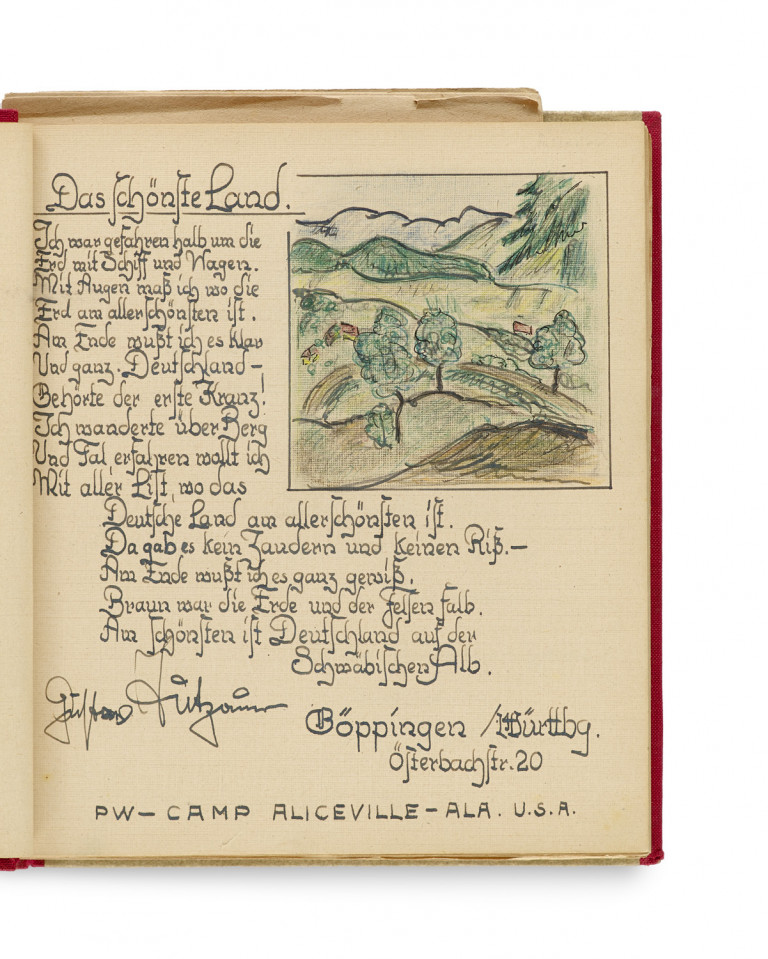 Das schönste Land.
Ich war gefahren halb um die
Erd mit Schiff und Wagen.
Mit Augen maß ich wo die
Erd am allerschönsten ist.
Am Ende wußt ich es klar
Und ganz. Deutschland –
Gehörte der erste Kranz!
Ich wanderte über Berg
Und Tal erfahren wollt ich
Mit aller List, wo das
Deutsche Land am allerschönsten ist.
Da gab es kein Zaudern und keinen Riß. –
Am Ende wußt ich es ganz gewiß.
Braun war die Erde und der Felsen falb.
Am schönsten ist Deutschland auf der
Schwäbischen Alb.
Gustav
Göppingen / Württbg.
Österbachstr. 20
PW – CAMP ALICEVILLE – ALA. U.S.A.